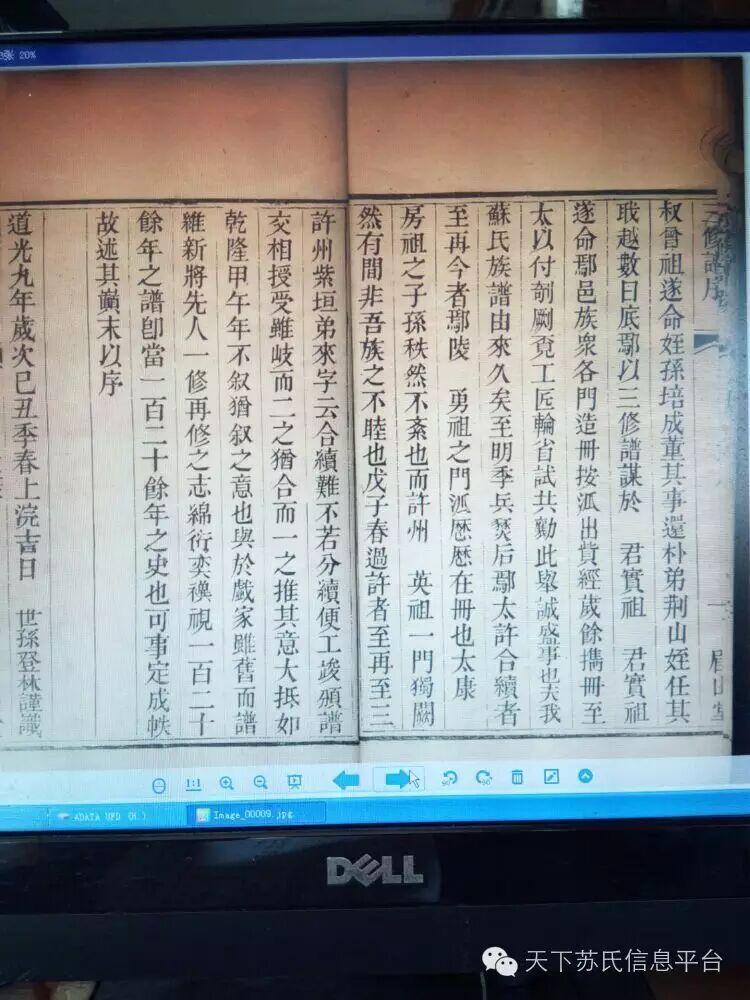 20%
三修譜序
眉山堂
叔曾祖遂命姪孫培成董其事還朴弟荆山姪任其
戢越數日底鄢以三修譜謀於 君實祖 君實祖
遂命鄢邑族衆各門造冊按派出貲經歲餘攜冊至
太以付剞劂竟工匠輪省試共勷此舉誠盛事也夫我
蘇氏族譜由來久矣至明季兵燹后鄢太許合續者
至再今者鄢陵 勇祖之門派歷歷在冊也太康
房祖之子孫秩然不紊也而許州 英祖一門獨闕
然有間非吾族之不睦也戊子春過許者至再至三
許州紫垣弟來字云合續難不若分續便工竣頒譜
交相授受雖岐而二之猶合而一之推其意大抵如
乾隆甲午年不叙猶叙之意也與於戲家雖舊而譜
維新將先人一修再修之志綿衍奕禩視一百二十
餘年之譜卽當一百二十餘年之史也可事定成帙
故述其巔末以序
道光九年歲次己丑季春上浣吉日 世孫登林謹識
1:1
ADATA UFD (H:)
Image_00009.jpg
DELL
天下苏氏信息平台